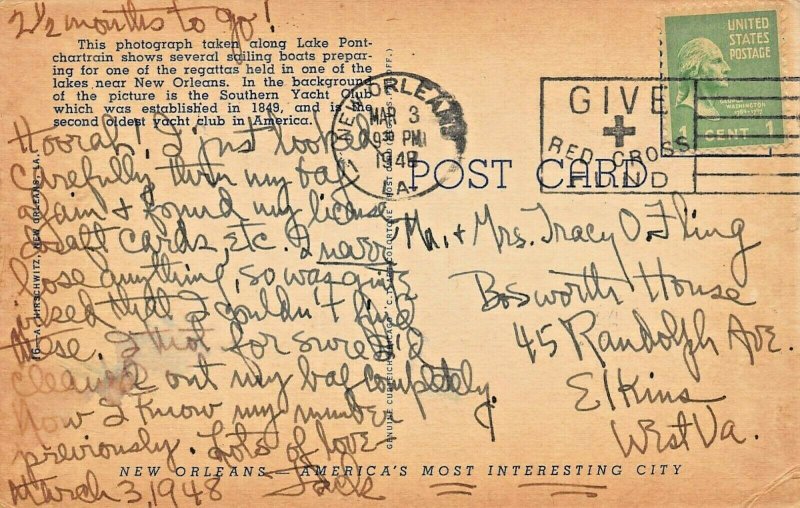 2 1/2 months to go!
This photograph taken along Lake Pont-
chartrain shows several sailing boats prepar-
ing for one of the regattas held in one of the
lakes near New Orleans. In the background
of the picture is the Southern Yacht Club
which was established in 1849, and is the
second oldest yacht club in America.
NEW ORLEANS
MAR 3
9 30 PM
1948
LA.
GIVE
RED CROSS
FUND
UNITED
STATES
POSTAGE
GEORGE
WASHINGTON
1 CENT 1
POST CARD
Hoorah! I just looked
carefully thru my bag
again & found my license
draft cards, etc. I never
lose anything, so was quite
irked that I couldn't find
these. I thot for sure I'd
cleaned out my bag completely.
Now I know my number
previously. Lots of love
March 3, 1948 Jack
Mr. + Mrs. Tracy O. Fling
Bosworth House
45 Randolph Ave.
Elkins
West Va.
A. HIRSCHWITZ, NEW ORLEANS, LA.
NEW ORLEANS—AMERICA'S MOST INTERESTING CITY